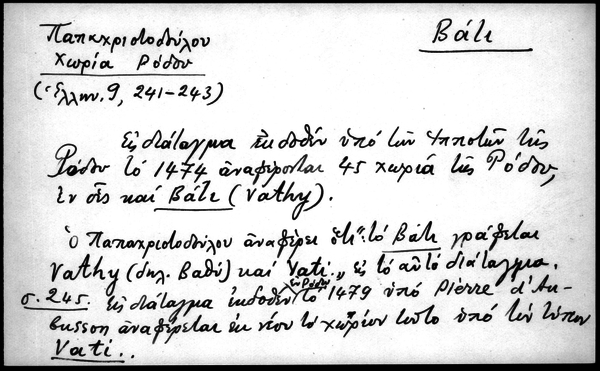 Παπαχριστοδούλου
Βάτι
Χωριά Ρόδου
(Ἑλλην. 9, 241-243)
Εἰς διάταγμα ἐκδοθέν ὑπό τῶν Ἱπποτῶν τῆς
Ρόδου τό 1474 ἀναφέρονται 45 χωριά τῆς Ρόδου,
ἐν οἷς καί Βάτι (Vathy).
Ὁ Παπαχριστοδούλου ἀναφέρει ὅτι "τό Βάτι γράφεται
Vathy (δηλ. Βαθύ) καί Vati" εἰς τό αὐτό διάταγμα.
σ. 245. Εἰς διάταγμα ἐκδοθέν ἐν Ρόδῳ τό 1479 ὑπό Pierre d'Au-
busson ἀναφέρεται ἐκ νέου τό χωρίον τοῦτο ὑπό τόν τύπον
Vati.